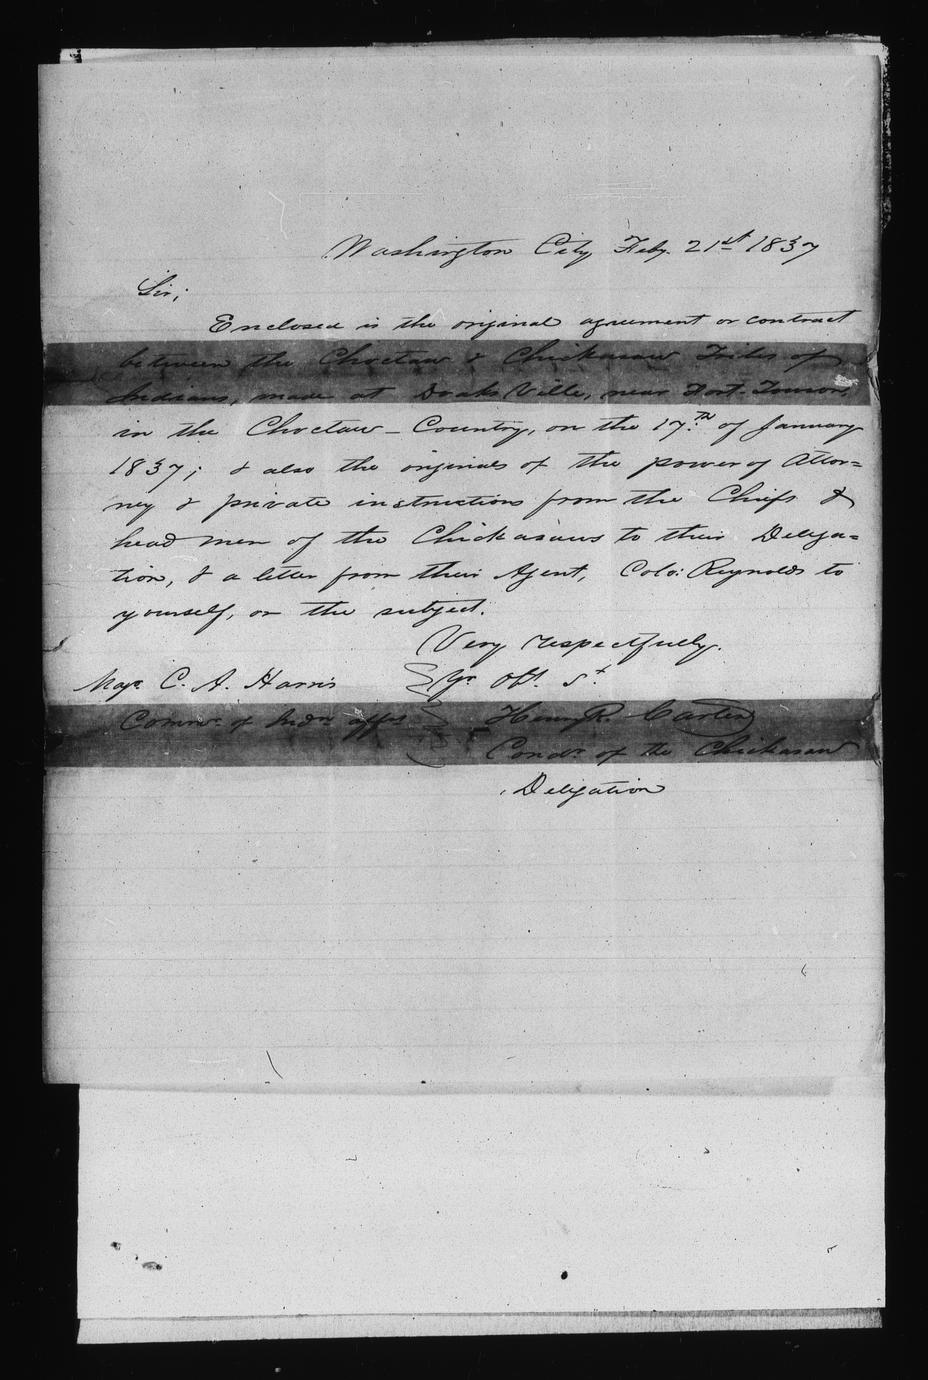 Washington City Feby. 21st 1837
Sir;
Enclosed is the original agreement or contract
between the Choctaw & Chickasaw Tribes of
Indians, made at Doaks Ville, near Fort Towson,
in the Choctaw - Country, on the 17.TH of January
1837; & also the originals of the power of Attor=
ney & private instructions from the Chiefs &
head men of the Chickasaws to their Delega=
tion, & a letter from their Agent, Colo: Reynolds to
yourself, on the subject.
Very respectfully.
Majr C. A. Harris
Yr Obt. St
Commr. of Indn affrs
Henry R. Carter
Condr. of the Chickasaw
Deligation